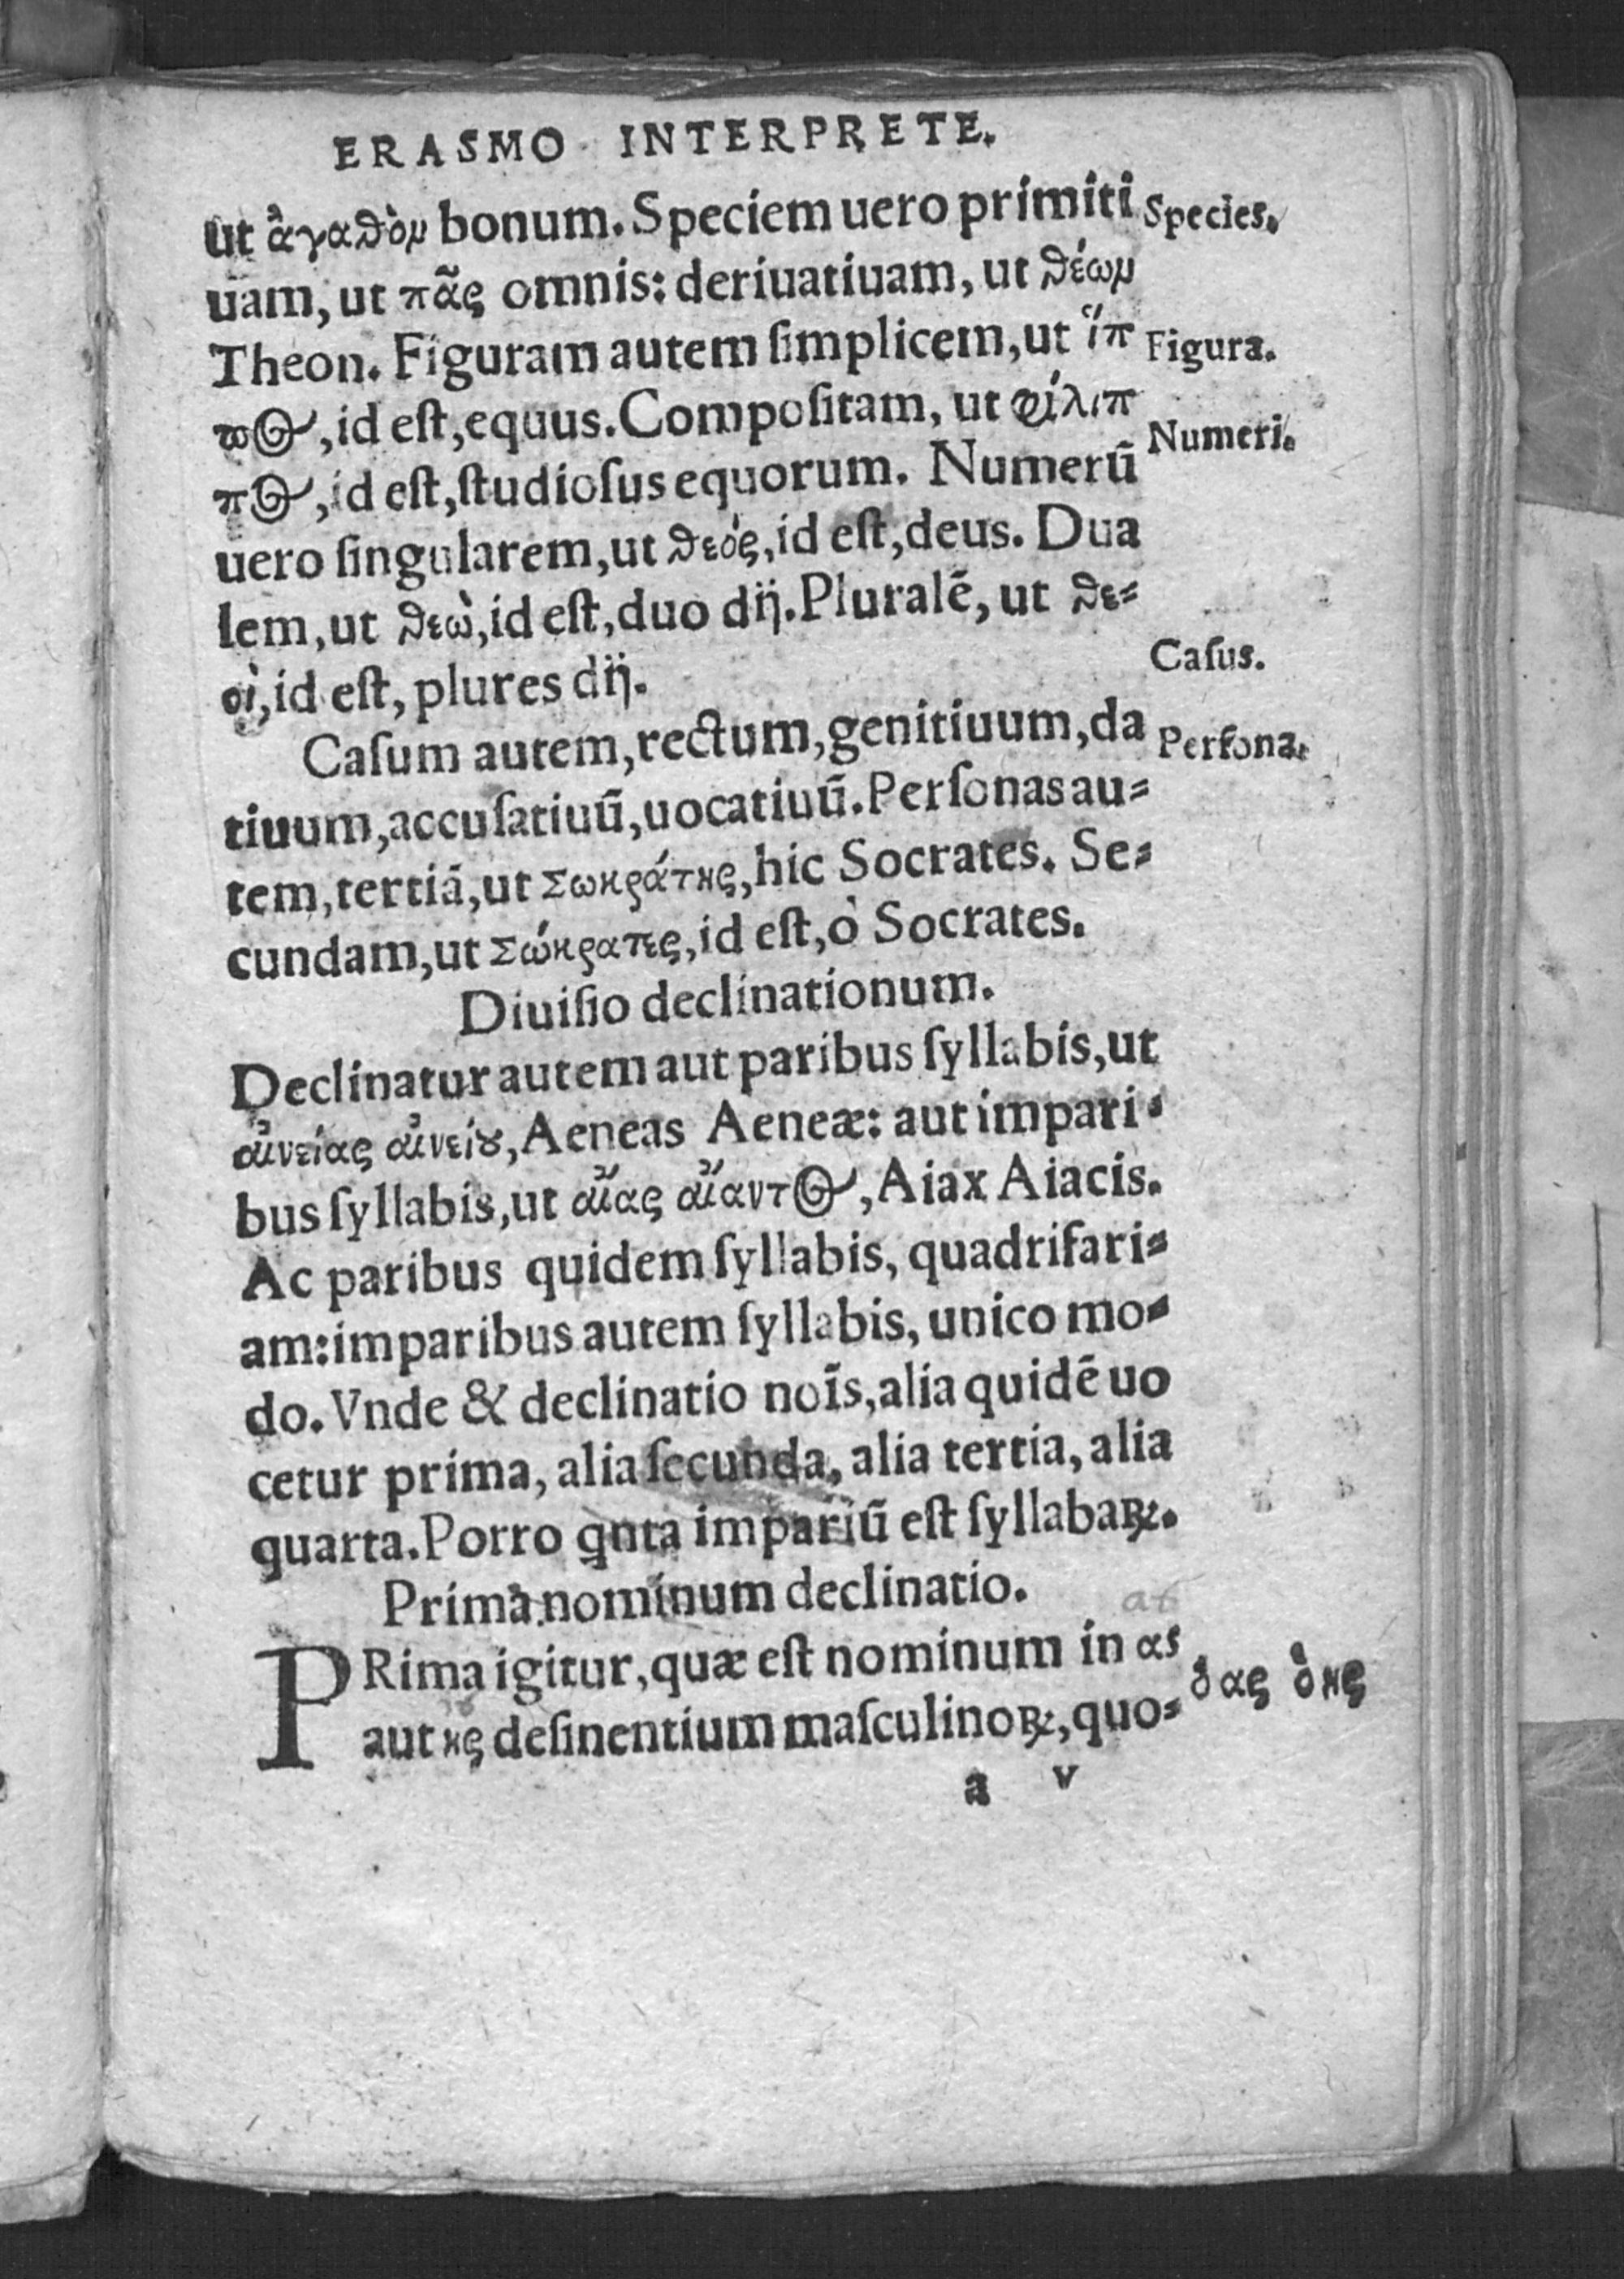 ERASMO INTERPRETE.
ut ἀγαθὸν bonum. Speciem uero primiti
Species.
uam, ut πᾶς omnis: deriuatiuam, ut θέων
Theon. Figuram autem ſimplicem, ut ἵπ
Figura.
πος, id eſt, equus. Compoſitam, ut φίλιπ
πος, id eſt, ſtudioſus equorum. Numerū
Numeri.
uero ſingularem, ut θεός, id eſt, deus. Dua
lem, ut θεὼ, id eſt, duo dij. Pluralē, ut θε-
οὶ, id eſt, plures dij.
Caſus.
Caſum autem, rectum, genitiuum, da
Perſona.
tiuum, accuſatiuū, uocatiuū. Perſonas au-
tem, tertiā, ut Σωκράτης, hic Socrates. Se-
cundam, ut Σώκρατες, id eſt, ò Socrates.
Diuiſio declinationum.
Declinatur autem aut paribus ſyllabis, ut
αἰνείας αἰνείȣ, Aeneas Aeneæ: aut impari-
bus ſyllabis, ut αἴας αἴαντος, Aiax Aiacis.
Ac paribus quidem ſyllabis, quadrifari-
am: imparibus autem ſyllabis, unico mo-
do. Vnde & declinatio noīs, alia quidē uo
cetur prima, alia ſecunda, alia tertia, alia
quarta. Porro qnta impariū eſt ſyllabaꝝ.
Prima nominum declinatio.
PRima igitur, quæ eſt nominum in ας
ὁ ας ὁ ης
aut ης deſinentium maſculinoꝝ, quo-
a v